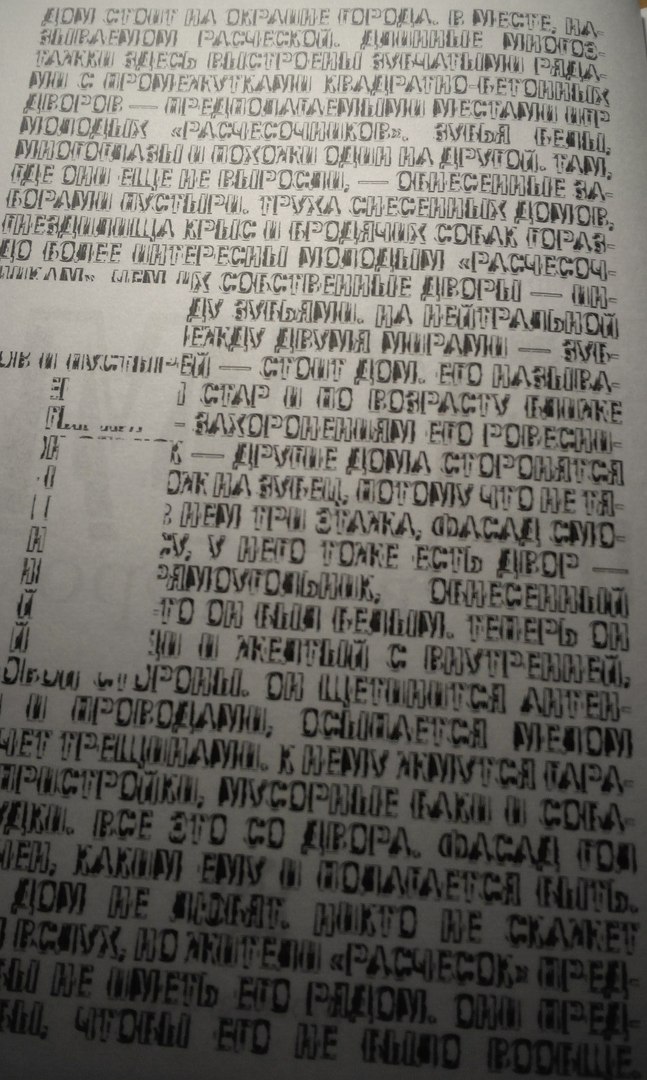 ДОМ СТОИТ НА ОКРАИНЕ ГОРОДА. В МЕСТЕ, НА-
ЗЫВАЕМОМ РАСЧЕСКОЙ. ДЛИННЫЕ МНОГОЭ-
ТАЖКИ ЗДЕСЬ ВЫСТРОЕНЫ ЗУБЧАТЫМИ РЯДА-
МИ С ПРОМЕЖУТКАМИ КВАДРАТНО-БЕТОННЫХ
ДВОРОВ — ПРЕДПОЛАГАЕМЫМИ МЕСТАМИ ИГР
МОЛОДЫХ «РАСЧЕСОЧНИКОВ». ЗУБЬЯ БЕЛЫ,
МНОГОГЛАЗЫ И ПОХОЖИ ОДИН НА ДРУГОЙ. ТАМ,
ГДЕ ОНИ ЕЩЕ НЕ ВЫРОСЛИ, — ОБНЕСЕННЫЕ ЗА-
БОРАМИ ПУСТЫРИ. ТРУХА СНЕСЕННЫХ ДОМОВ,
ГНЕЗДИЛИЩА КРЫС И БРОДЯЧИХ СОБАК ГОРАЗ-
ДО БОЛЕЕ ИНТЕРЕСНЫ МОЛОДЫМ «РАСЧЕСОЧ-
НИКАМ» ЧЕМ ИХ СОБСТВЕННЫЕ ДВОРЫ — ИН-
ДУ ЗУБЬЯМИ. НА НЕЙТРАЛЬНОЙ
ЕЖДУ ДВУМЯ МИРАМИ — ЗУБ-
ОВ И ПУСТЫРЕЙ — СТОИТ ДОМ. ЕГО НАЗЫВА-
СТАР И ПО ВОЗРАСТУ БЛИЖЕ
— ЗАХОРОНЕНИЯМ ЕГО РОВЕСНИ-
К — ДРУГИЕ ДОМА СТОРОНЯТСЯ
ОЖ НА ЗУБЕЦ, ПОТОМУ ЧТО НЕ ТЯ-
В НЕМ ТРИ ЭТАЖА, ФАСАД СМО-
У, У НЕГО ТОЖЕ ЕСТЬ ДВОР —
РЯМОУГОЛЬНИК, ОБНЕСЕННЫЙ
ТО ОН БЫЛ БЕЛЫМ. ТЕПЕРЬ ОН
И ЖЕЛТЫЙ С ВНУТРЕННЕЙ,
СТОРОНЫ. ОН ЩЕТИНИТСЯ АНТЕН-
И ПРОВОДАМИ, ОСЫПАЕТСЯ МЕЛОМ
ЧЕТ ТРЕЩИНАМИ. К НЕМУ ЖМУТСЯ ГАРА-
ПРИСТРОЙКИ, МУСОРНЫЕ БАКИ И СОБА-
УДКИ. ВСЕ ЭТО СО ДВОРА. ФАСАД ГОЛ
ЧЕН, КАКИМ ЕМУ И ПОЛАГАЕТСЯ БЫТЬ.
ДОМ НЕ ЛЮБЯТ. НИКТО НЕ СКАЖЕТ
ВСЛУХ, НО ЖИТЕЛИ «РАСЧЕСОК» ПРЕД-
БЫ НЕ ИМЕТЬ ЕГО РЯДОМ. ОНИ ПРЕД-
БЫ, ЧТОБЫ ЕГО НЕ БЫЛО ВООБЩЕ.